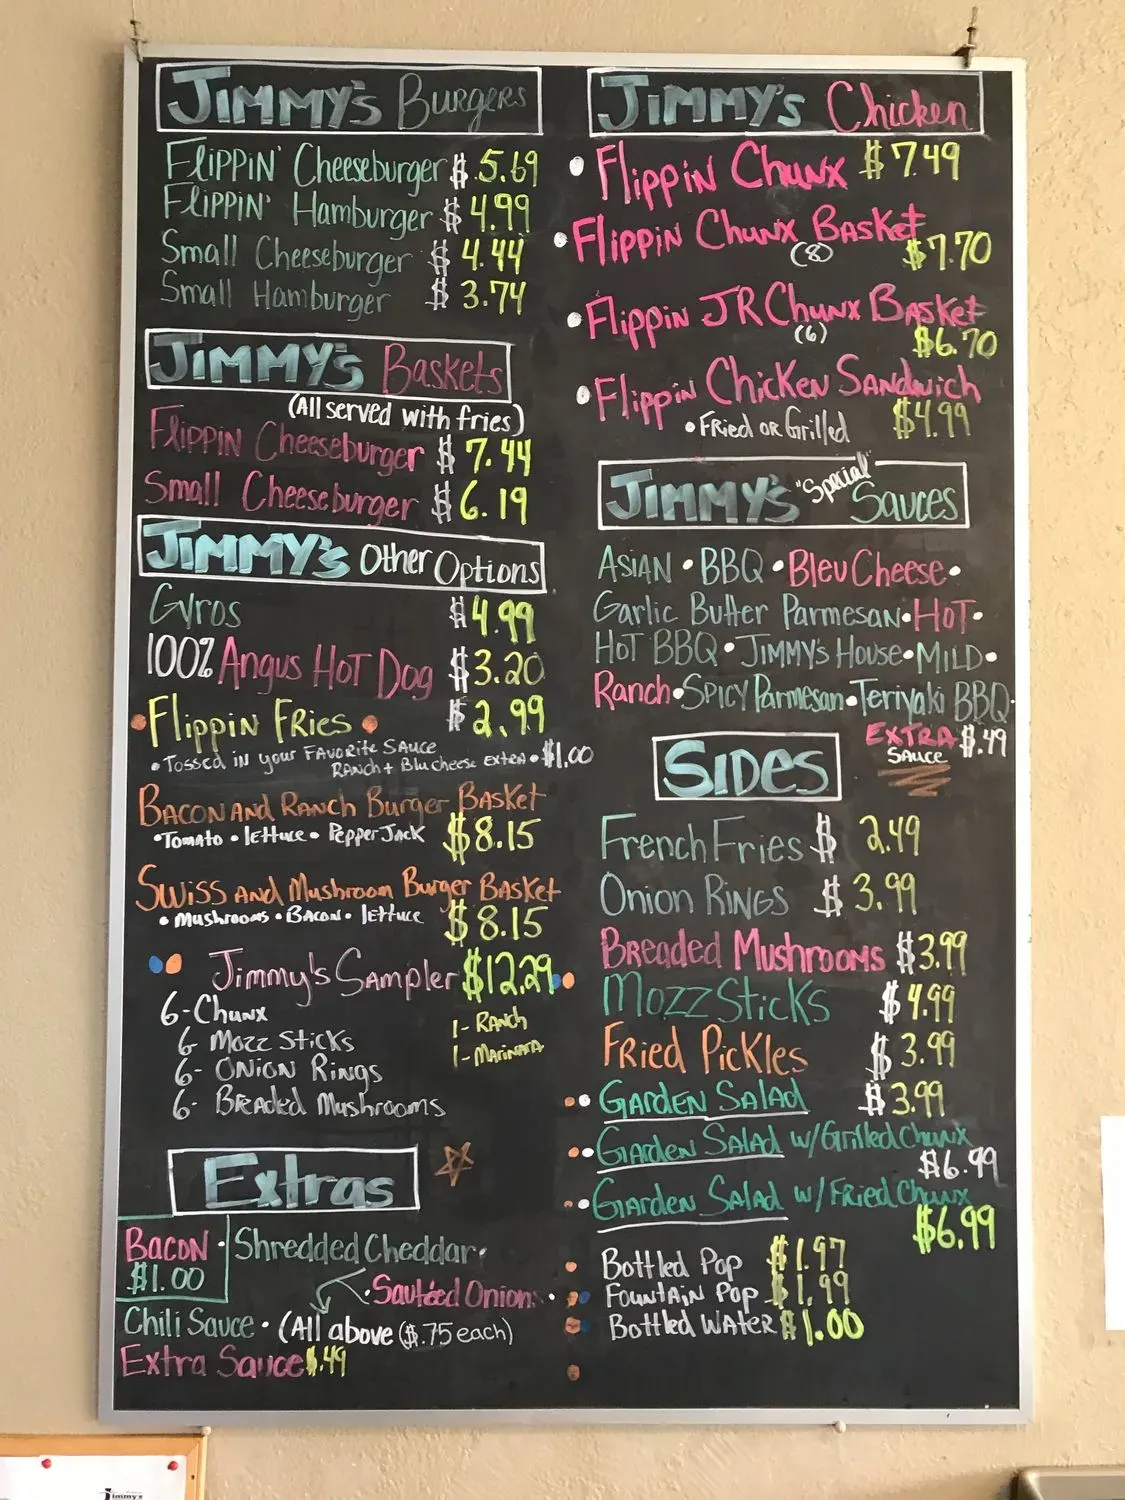 JIMMY's Burgers
Flippin' Cheeseburger $ 5.69
Flippin' Hamburger $ 4.99
Small Cheeseburger $ 4.44
Small Hamburger $ 3.74
JIMMY's Baskets
(All served with fries)
Flippin Cheeseburger $ 7.44
Small Cheeseburger $ 6.19
JIMMY's Other Options
Gyros $4.99
100% Angus Hot Dog $3.20
Flippin Fries $2.99
• Tossed in your Favorite Sauce
Ranch + Blu cheese extra • $1.00
Bacon and Ranch Burger Basket
• Tomato • lettuce • PepperJack $8.15
Swiss and Mushroom Burger Basket
• Mushrooms • Bacon • lettuce $8.15
Jimmy's Sampler $12.29
6-Chunx
6 Mozz Sticks
6- Onion Rings
6- Breaded Mushrooms
1- Ranch
1- Marinara
Extras
Bacon • Shredded Cheddar •
$1.00
• Sautéed Onions •
Chili Sauce • (All above ($.75 each)
Extra Sauce $.49
JIMMY's Chicken
• Flippin Chunx $7.49
• Flippin Chunx Basket
(8) $7.70
• Flippin JR Chunx Basket
(6) $6.70
• Flippin Chicken Sandwich
• Fried or Grilled $4.99
JIMMY's "Special" Sauces
Asian • BBQ • Bleu Cheese •
Garlic Butter Parmesan • Hot •
Hot BBQ • Jimmy's House • Mild •
Ranch • Spicy Parmesan • Teriyaki BBQ •
Extra $.49
Sauce
Sides
French Fries $ 2.49
Onion Rings $ 3.99
Breaded Mushrooms $3.99
Mozz Sticks $4.99
Fried Pickles $ 3.99
Garden Salad $3.99
Garden Salad w/Grilled Chunx
$6.99
Garden Salad w/ Fried Chunx
$6.99
Bottled Pop $1.97
Fountain Pop $1.99
Bottled Water $1.00
Jimmy's